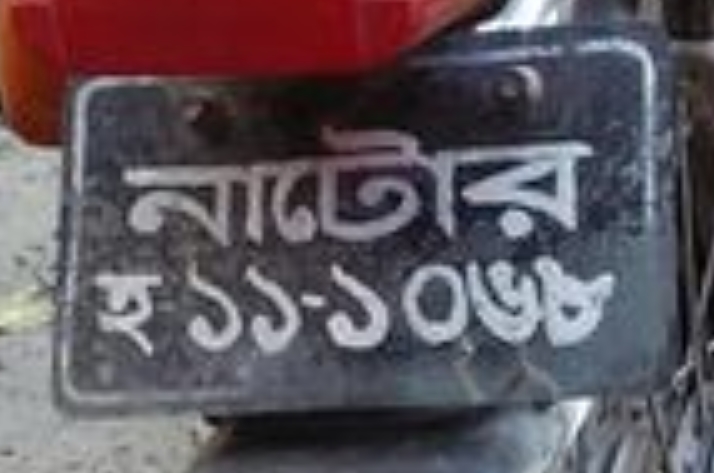 নাটোর
হ ১১-১০৬৮